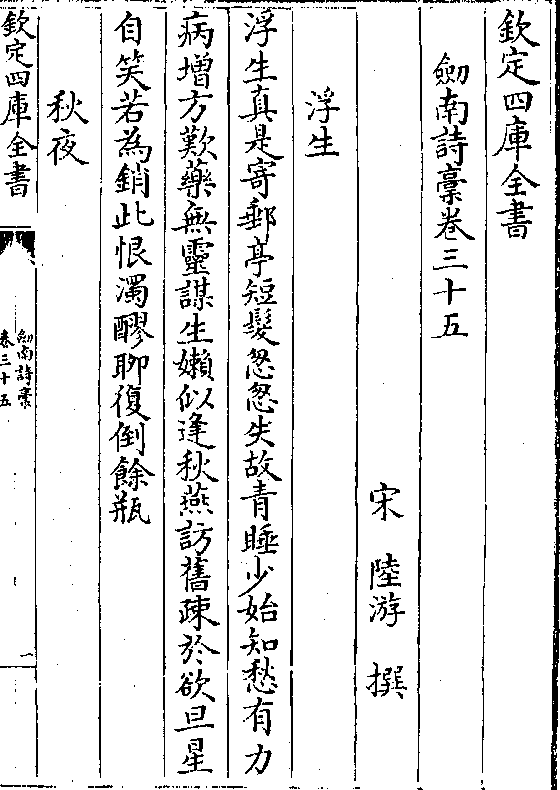 欽定四庫全書
劒南詩藁卷三十五
宋 陸游 撰
浮生
浮生真是寄郵亭短髮怱怱失故青睡少始知愁有力
病增方歎藥無靈謀生嬾似逢秋燕訪舊疎於欲旦星
自笑若為銷此恨濁醪聊復倒餘瓶
秋夜
欽定四庫全書
劒南詩藁
卷三十五
一